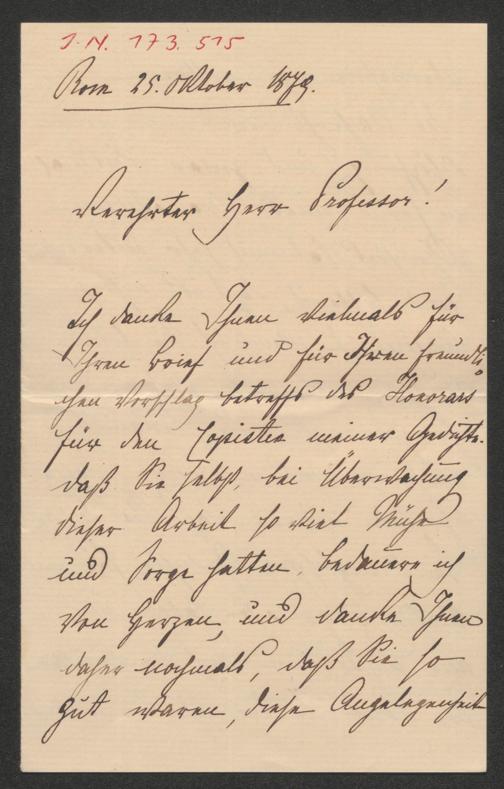 J. N. 173.515
Rom 25. Oktober 1879.
Verehrter Herr Professor!
Ich danke Ihnen vielmals für
Ihren Brief und für Ihren freundli-
chen Vorschlag betreffs des Honorars
für den Copisten meiner Gedichte.
daß Sie selbst, bei Überwachung
dieser Arbeit so viel Mühe
und Sorge hatten, bedauere ich
von Herzen, und danke Ihnen
daher nochmals, daß Sie so
gut waren, diese Angelegenheit